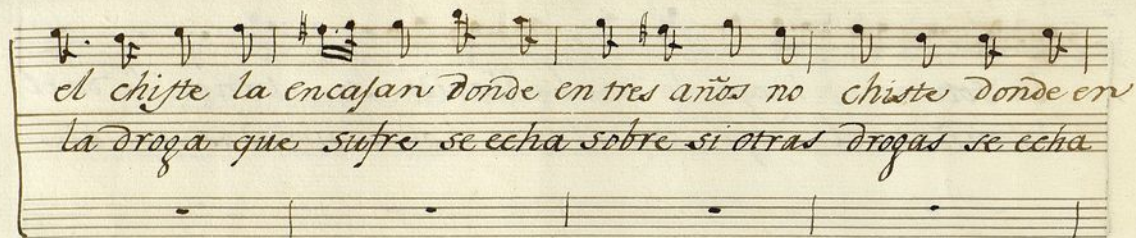 el chiste la encasan donde en tres años no chiste donde en
la droga que sufre se echa sobre si otras drogas se echa